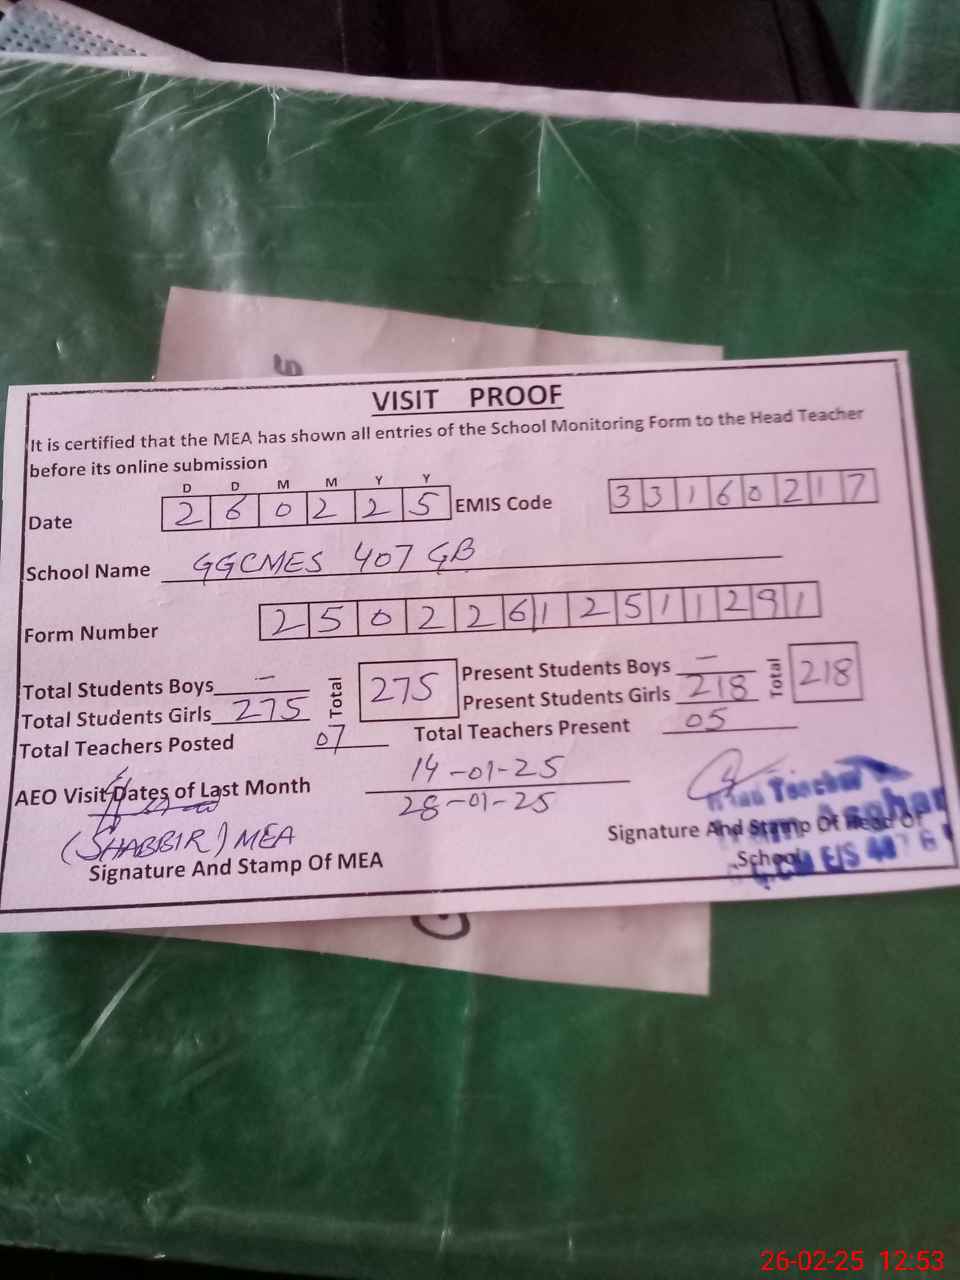 VISIT PROOF
It is certified that the MEA has shown all entries of the School Monitoring Form to the Head Teacher
before its online submission
D D M M Y Y
Date 2 6 0 2 2 5 EMIS Code 3 3 1 6 0 2 1 7
School Name GGCMES 407 GB
Form Number 2 5 0 2 2 6 1 2 5 1 1 2 9 1
Total Students Boys — Total 275 Present Students Boys — Total 218
Total Students Girls 275 Present Students Girls 218
Total Teachers Posted 07 Total Teachers Present 05
AEO Visit Dates of Last Month 14-01-25
28-01-25
(SHABBIR) MEA
Signature And Stamp Of MEA
Head Teacher
Asghar
Signature And Stamp Of Head Of
School
26-02-25 12:53